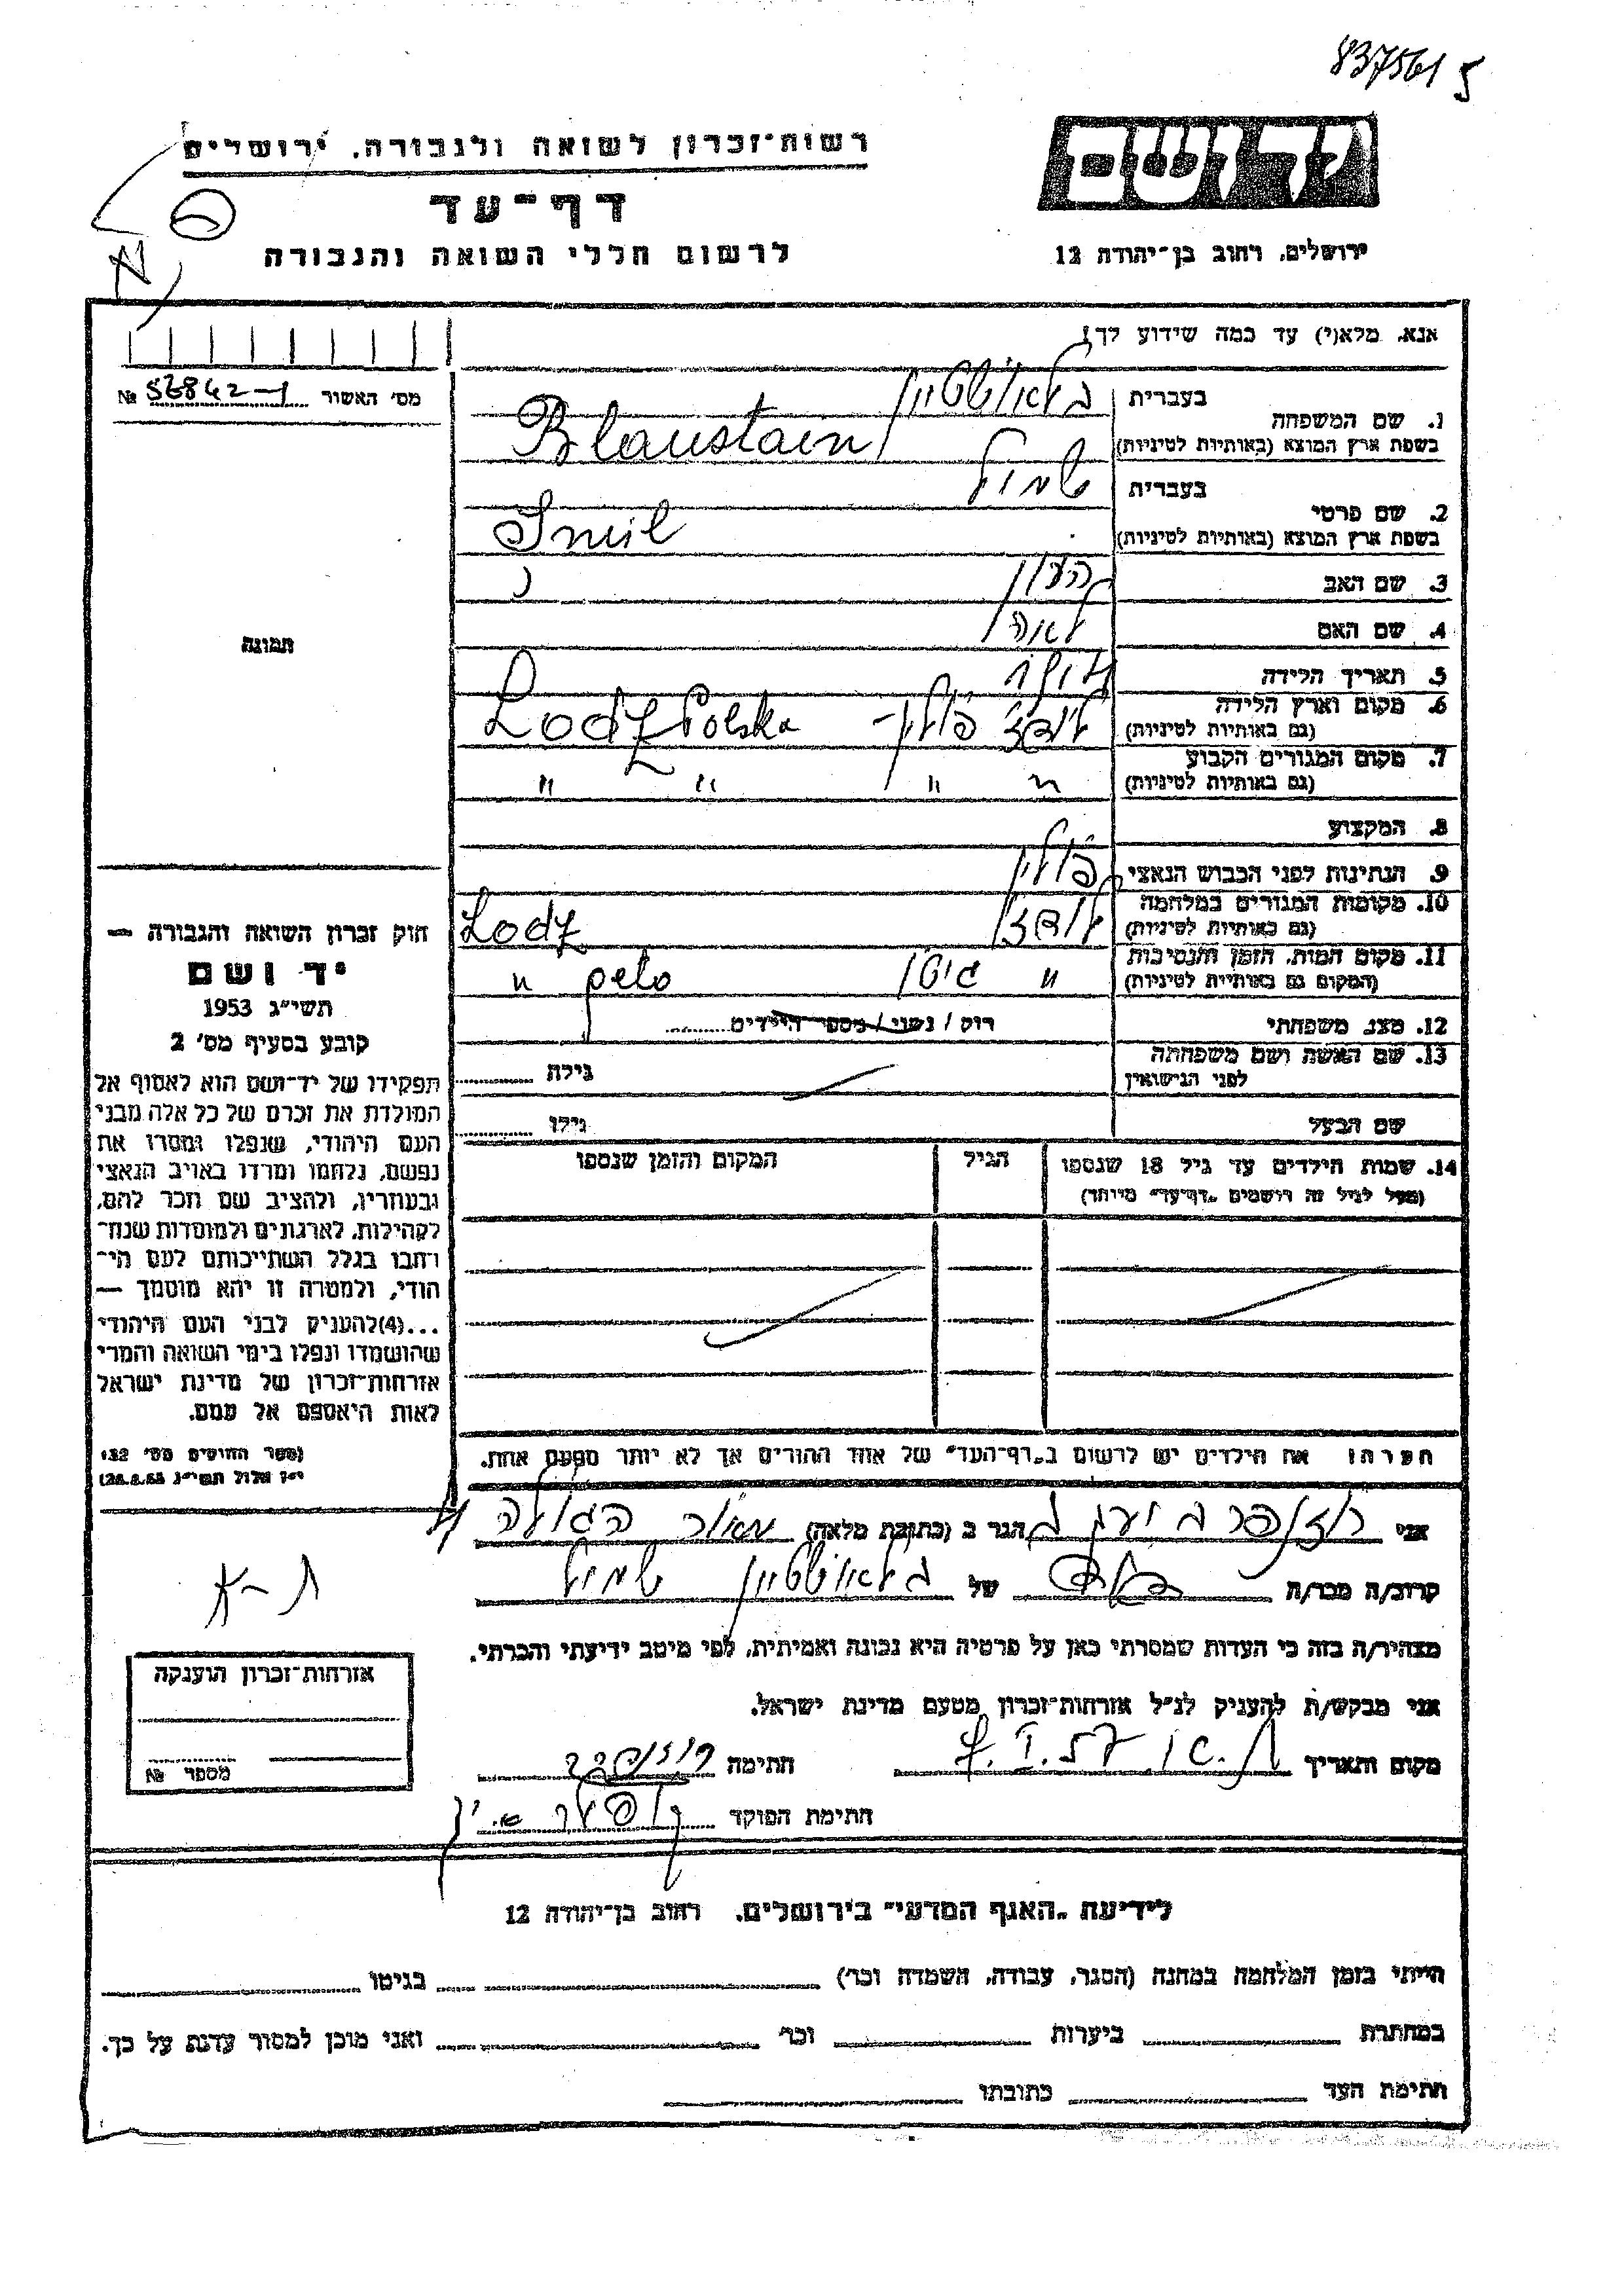 837561 5
רשות־זכרון לשואה ולגבורה, ירושלים
יד ושם
דף־עד
לרשום חללי השואה והגבורה
ירושלים, רחוב בן־יהודה 12
אנא, מלא(י) עד כמה שידוע לך!
מס' האשור № 56842-1
1. שם המשפחה
בעברית בלאושטיין
בשפת ארץ המוצא (באותיות לטיניות) Blaustain
2. שם פרטי
בעברית שמויל
בשפת ארץ המוצא (באותיות לטיניות) Smil
3. שם האב
4. שם האם לאה
תמונה
5. תאריך הלידה
6. מקום וארץ הלידה
(גם באותיות לטיניות) לודז' פולין Lodz Polska
7. מקום המגורים הקבוע
(גם באותיות לטיניות) " " " "
8. המקצוע
9. הנתינות לפני הכבוש הנאצי פולין
10. מקומות המגורים במלחמה
(גם באותיות לטיניות) לודז Lodz
11. מקום המות, הזמן והנסיבות
(המקום גם באותיות לטיניות) " גיטו " geto
12. מצב משפחתי רוק / נשוי / מספר הילדים
13. שם האשה ושם משפחתה
לפני הנישואין גילה
שם הבעל גילו
14. שמות הילדים עד גיל 18 שנספו הגיל המקום והזמן שנספו
(מעל לגיל זה רושמים "דף־עד" מיוחד)
חוק זכרון השואה והגבורה —
יד ושם
תשי"ג 1953
קובע בסעיף מס' 2
תפקידו של יד־ושם הוא לאסוף אל
המולדת את זכרם של כל אלה מבני
העם היהודי, שנפלו ומסרו את
נפשם, נלחמו ומרדו באויב הנאצי
ובעוזריו, ולהציב שם וזכר להם,
לקהילות, לארגונים ולמוסדות שנח־
רבו בגלל השתייכותם לעם הי־
הודי, ולמטרה זו יהא מוסמך —
...(4)להעניק לבני העם היהודי
שהושמדו ונפלו בימי השואה והמרי
אזרחות־זכרון של מדינת ישראל
לאות היאספם אל עמם.
(ספר החוקים מס' 132,
י"ז אלול תשי"ג 28.8.53)
הערה: את הילדים יש לרשום ב"דף־העד" של אחד ההורים אך לא יותר מפעם אחת.
אני הגר ב (כתובת מלאה) מאור הגולה
קרוב/ה מכר/ה של בלאושטיין שמויל
מצהיר/ה בזה כי העדות שמסרתי כאן על פרטיה היא נכונה ואמיתית, לפי מיטב ידיעתי והכרתי.
אני מבקש/ת להעניק לנ"ל אזרחות־זכרון מטעם מדינת ישראל.
מקום ותאריך חתימה
חתימת הפוקד
ת-א
אזרחות־זכרון הוענקה
מספר №
לידיעת "האגף המדעי" בירושלים, רחוב בן־יהודה 12
הייתי בזמן המלחמה במחנה (הסגר, עבודה, השמדה וכו') בגיטו
במחתרת ביערות וכו' ואני מוכן למסור עדות על כך.
חתימת העד כתובתו